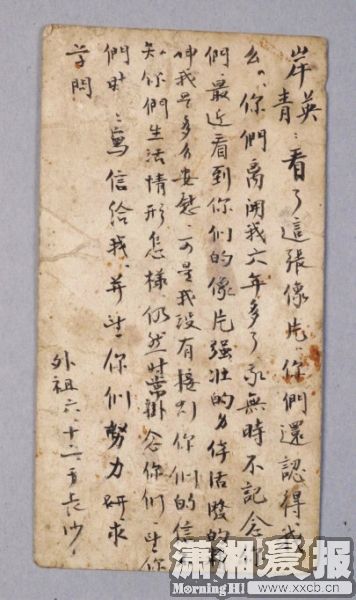 岸英
青：看了這張像片、你們還認得我
么、你們离開我六年多了、我無時不記念你
們、最近看到你們的像片强壮的身体活潑的精
神我是多么安慰、可是我没有接到你們的信
知你們生活情形怎樣、仍然時常掛念你們、望你
們時：寫信給我、并望你們努力研求
学問
外祖六十二于長沙
潇湘晨报
Morning H
www.xxcb.cn